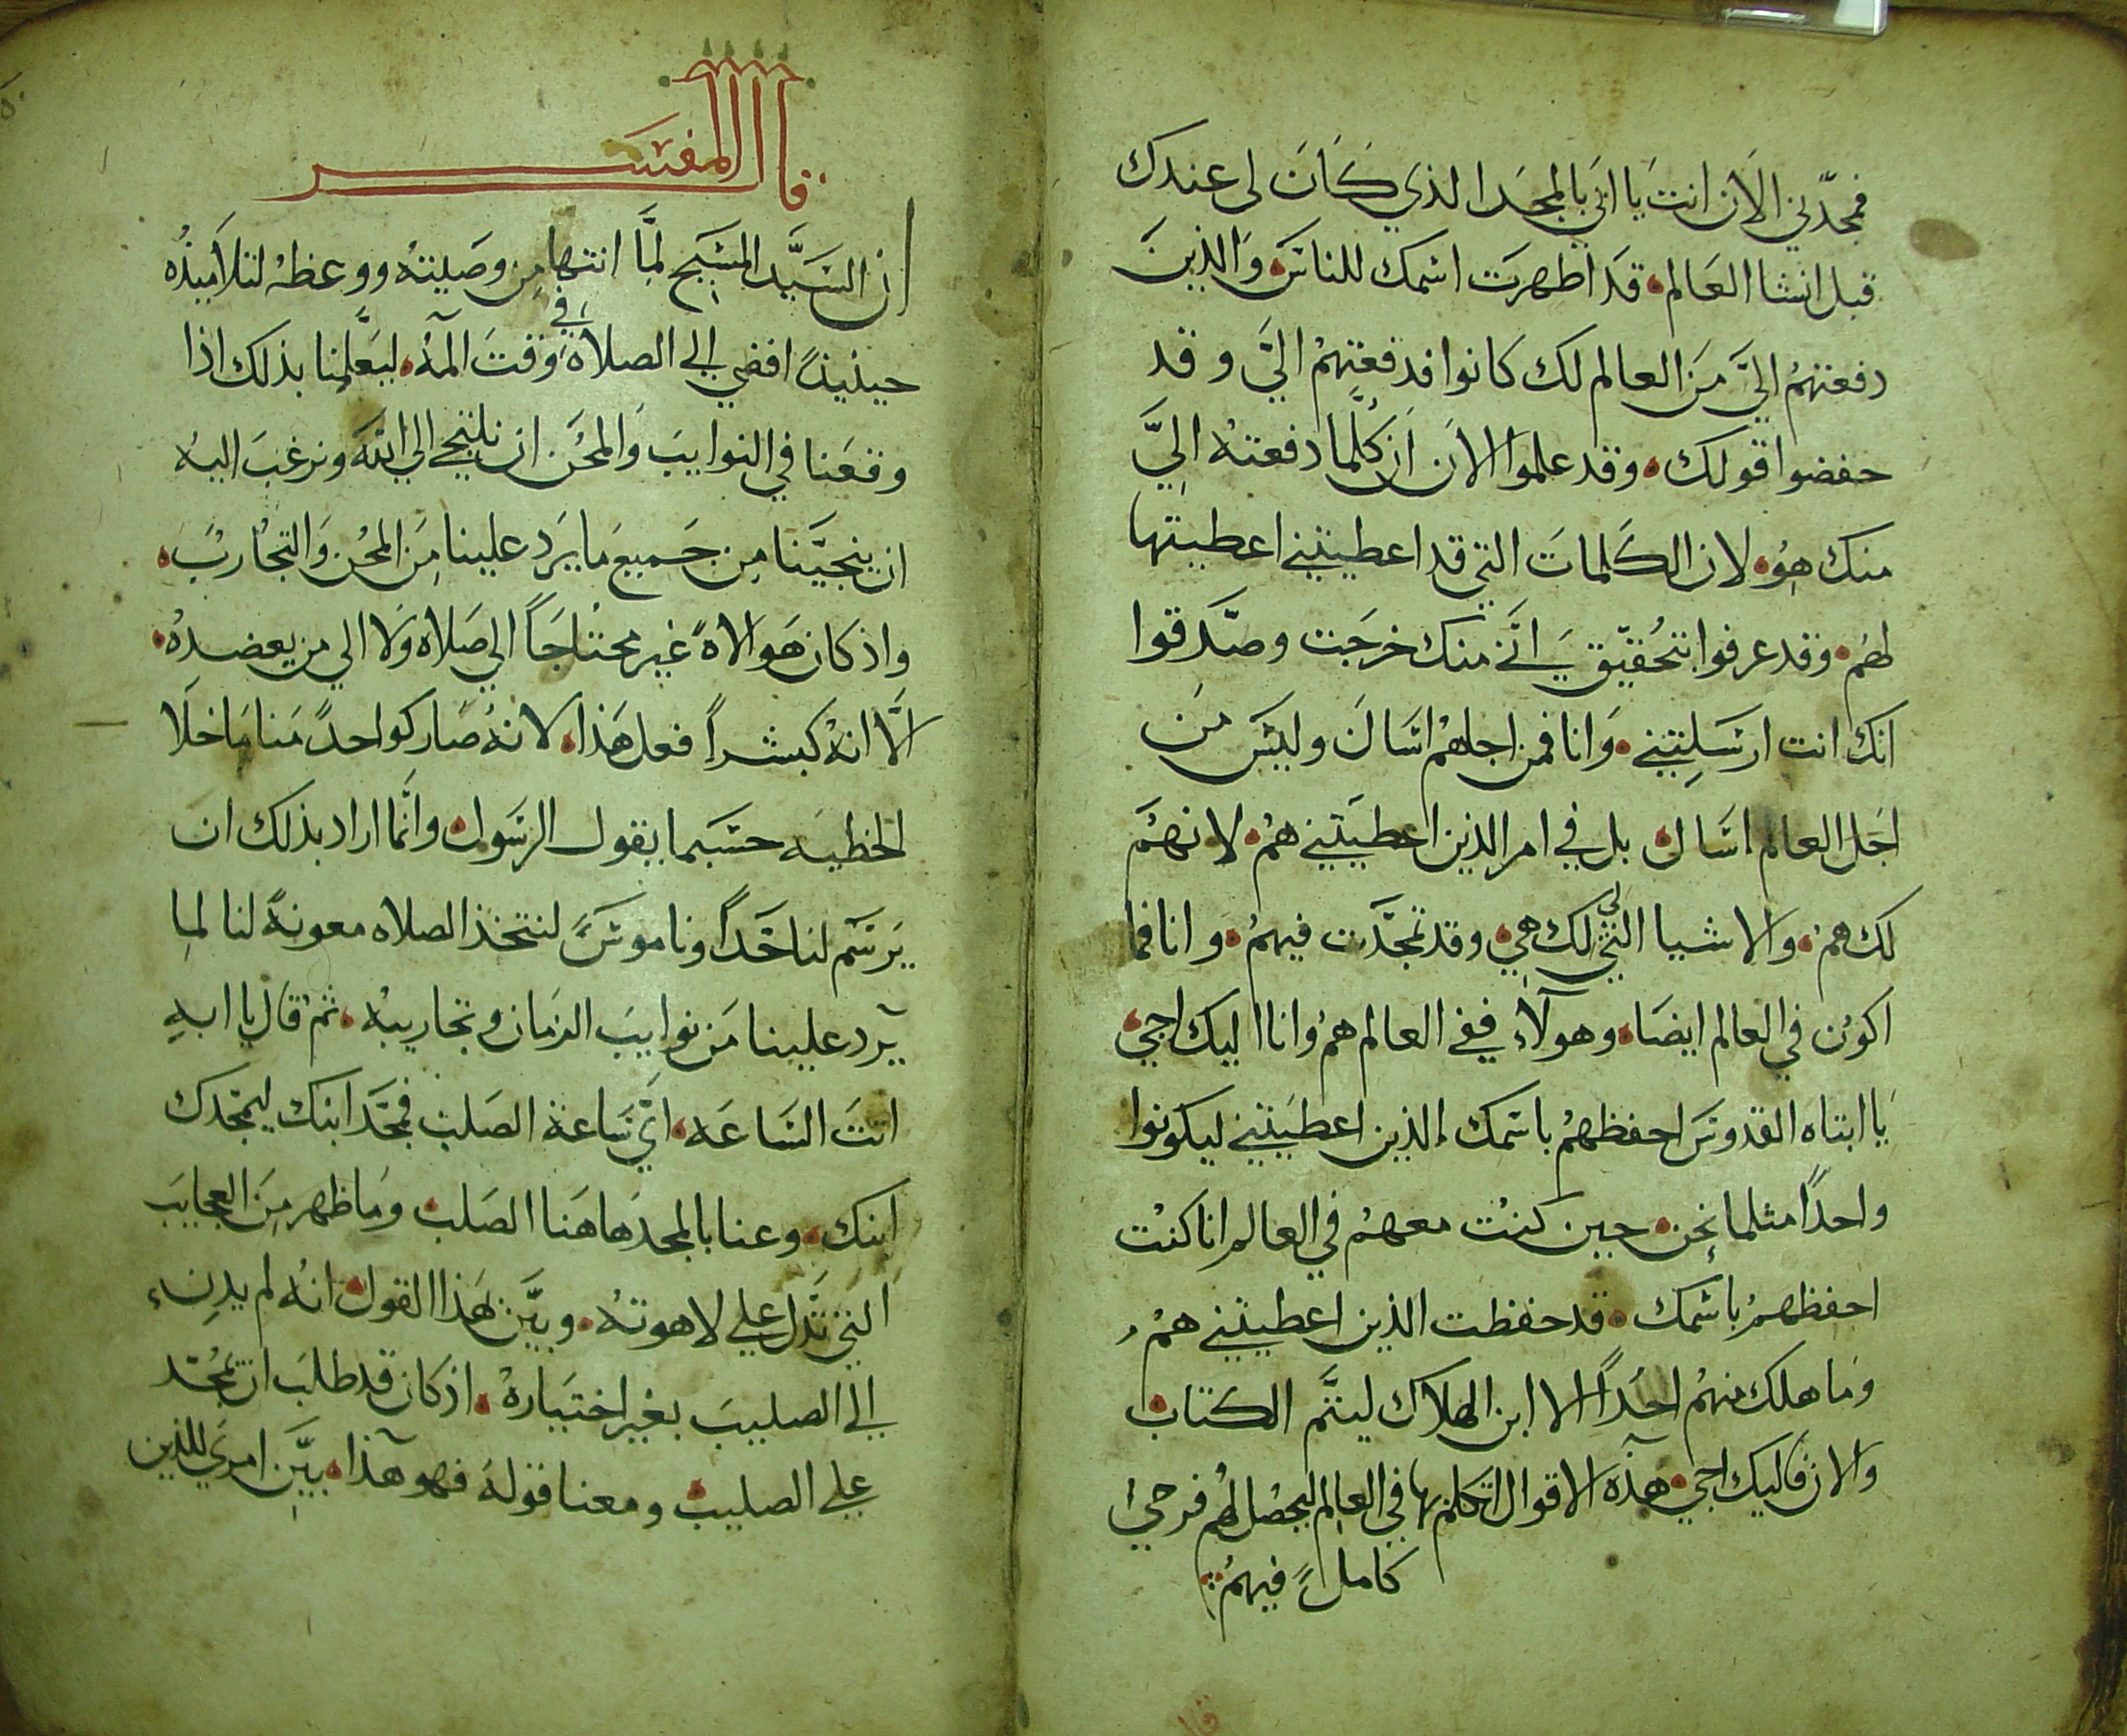 فمجدني الان انت يا ابي بالمجد الذي كان لي عندك
قبل انشا العالم قد اظهرت اسمك للناس والذين
دفعتهم الي من العالم لك كانوا فدفعتهم الي وقد
حفضوا قولك وقد علموا الان ان كلما دفعته الي
منك هو لان الكلمات التي قد اعطيتني اعطيتها
لهم وقد عرفوا بتحقيق اني منك خرجت وصدقوا
انك انت ارسلتني وانا فمن اجلهم اسال وليس من
اجل العالم اسال بل في امر الذين اعطيتني هم لانهم
لك هم والاشيا التي لي لك هي وقد تمجدت فيهم وانا فما
اكون في العالم ايضا وهولاء ففي العالم هم وانا اليك اجي
يا ابتاه القدوس احفظهم باسمك الذين اعطيتني ليكونوا
واحدا مثلما نحن حين كنت معهم في العالم انا كنت
احفظهم باسمك قد حفظت الذين اعطيتني هم
وما هلك منهم احدا الا ابن الهلاك ليتم الكتاب
والان فاليك اجي هذه الاقوال اتكلم بها في العالم ليحصل لهم فرحي
كاملا فيهم
قال المفسر
ان السيد المسيح لما انتها من وصيته ووعظه لتلاميذه
حينيذا افضي الي الصلاة في وقت المه ليعلمنا بذلك اذا
وقعنا في النوايب والمحن ان نلتجي الي الله ونرغب اليه
ان ينجينا من جميع ما يرد علينا من المحن والتجارب
واذ كان هو الاه غير محتاجا الي صلاه ولا الي من يعضده
الا انه كبشرا فعل هذا لانه صار كواحد منا ما خلا
الخطيه حسبما يقول الرسول وانما اراد بذلك ان
يرسم لنا حدا وناموس لنتخذ الصلاه معونة لنا لما
يرد علينا من نوايب الزمان وتجاريبه ثم قال يا ابه
اتت الساعه اي ساعة الصلب فمجد ابنك ليمجدك
ابنك وعنا بالمجد هاهنا الصلب وما ظهر من العجايب
التي تدل علي لاهوته وبين هذا القول انه لم يدنء
الي الصليب بغير اختياره اذ كان قد طلب ان يمجد
علي الصليب ومعنا قوله فهو هذا بين امري للذين